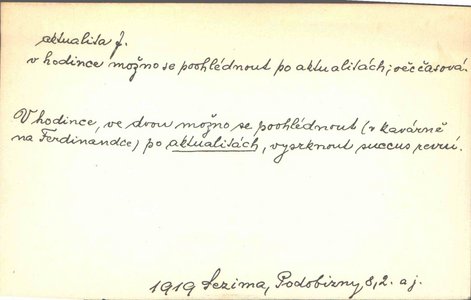 aktualita f.
v hodince možno se poohlédnout po aktualitách; věc časová.
V hodince, ve dvou možno se poohlédnout (v kavárně
na Ferdinandce) po aktualitách, vysrknout succus revuí.
1919 Sezima, Podobizny, 8, 2. aj.